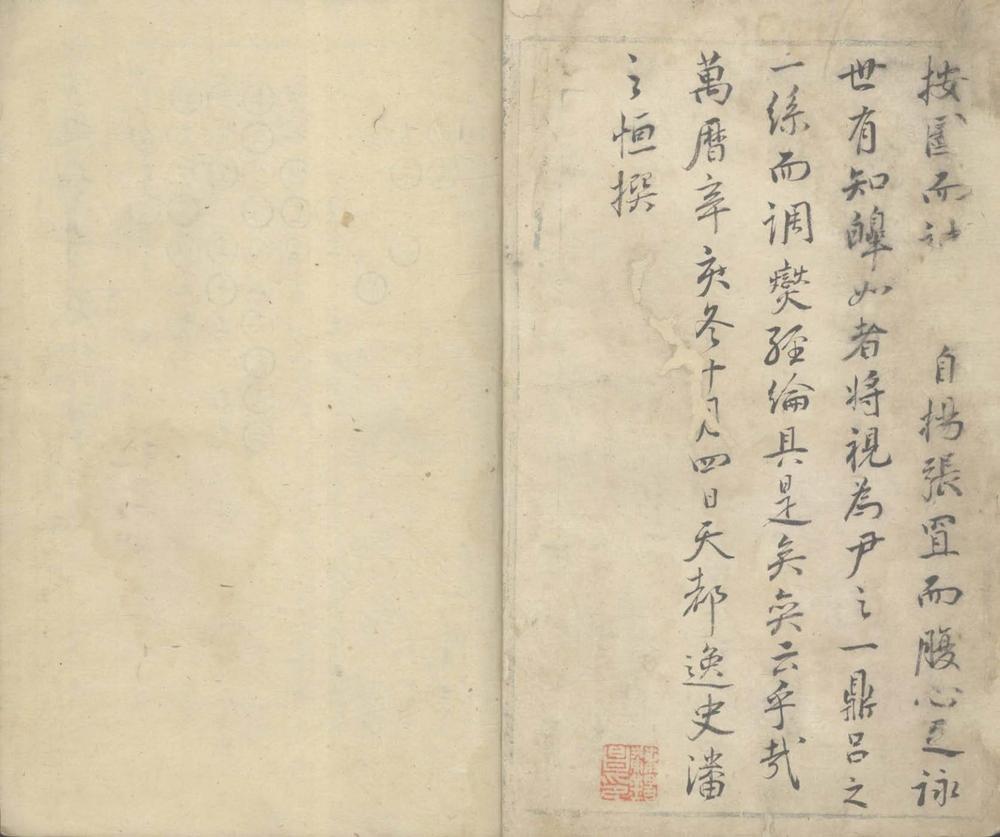 按圖而 自揚張罝而腹心是詠
世有知皥如者將視為尹之一鼎呂之
一絲而調爕經綸具是矣奕云乎哉
萬曆辛亥冬十月四日天都逸史潘
之恒撰